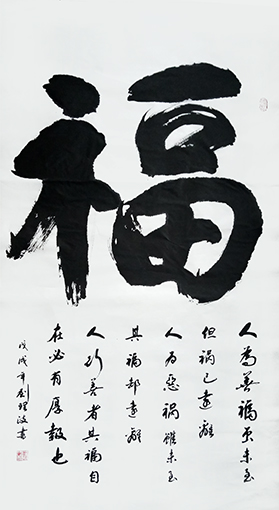 福
人為善福虽未至
但祸已遠離
人为惡祸雖未至
其福却遠離
人行善者其福自
在必有厚報也
戊戌年刘理政書